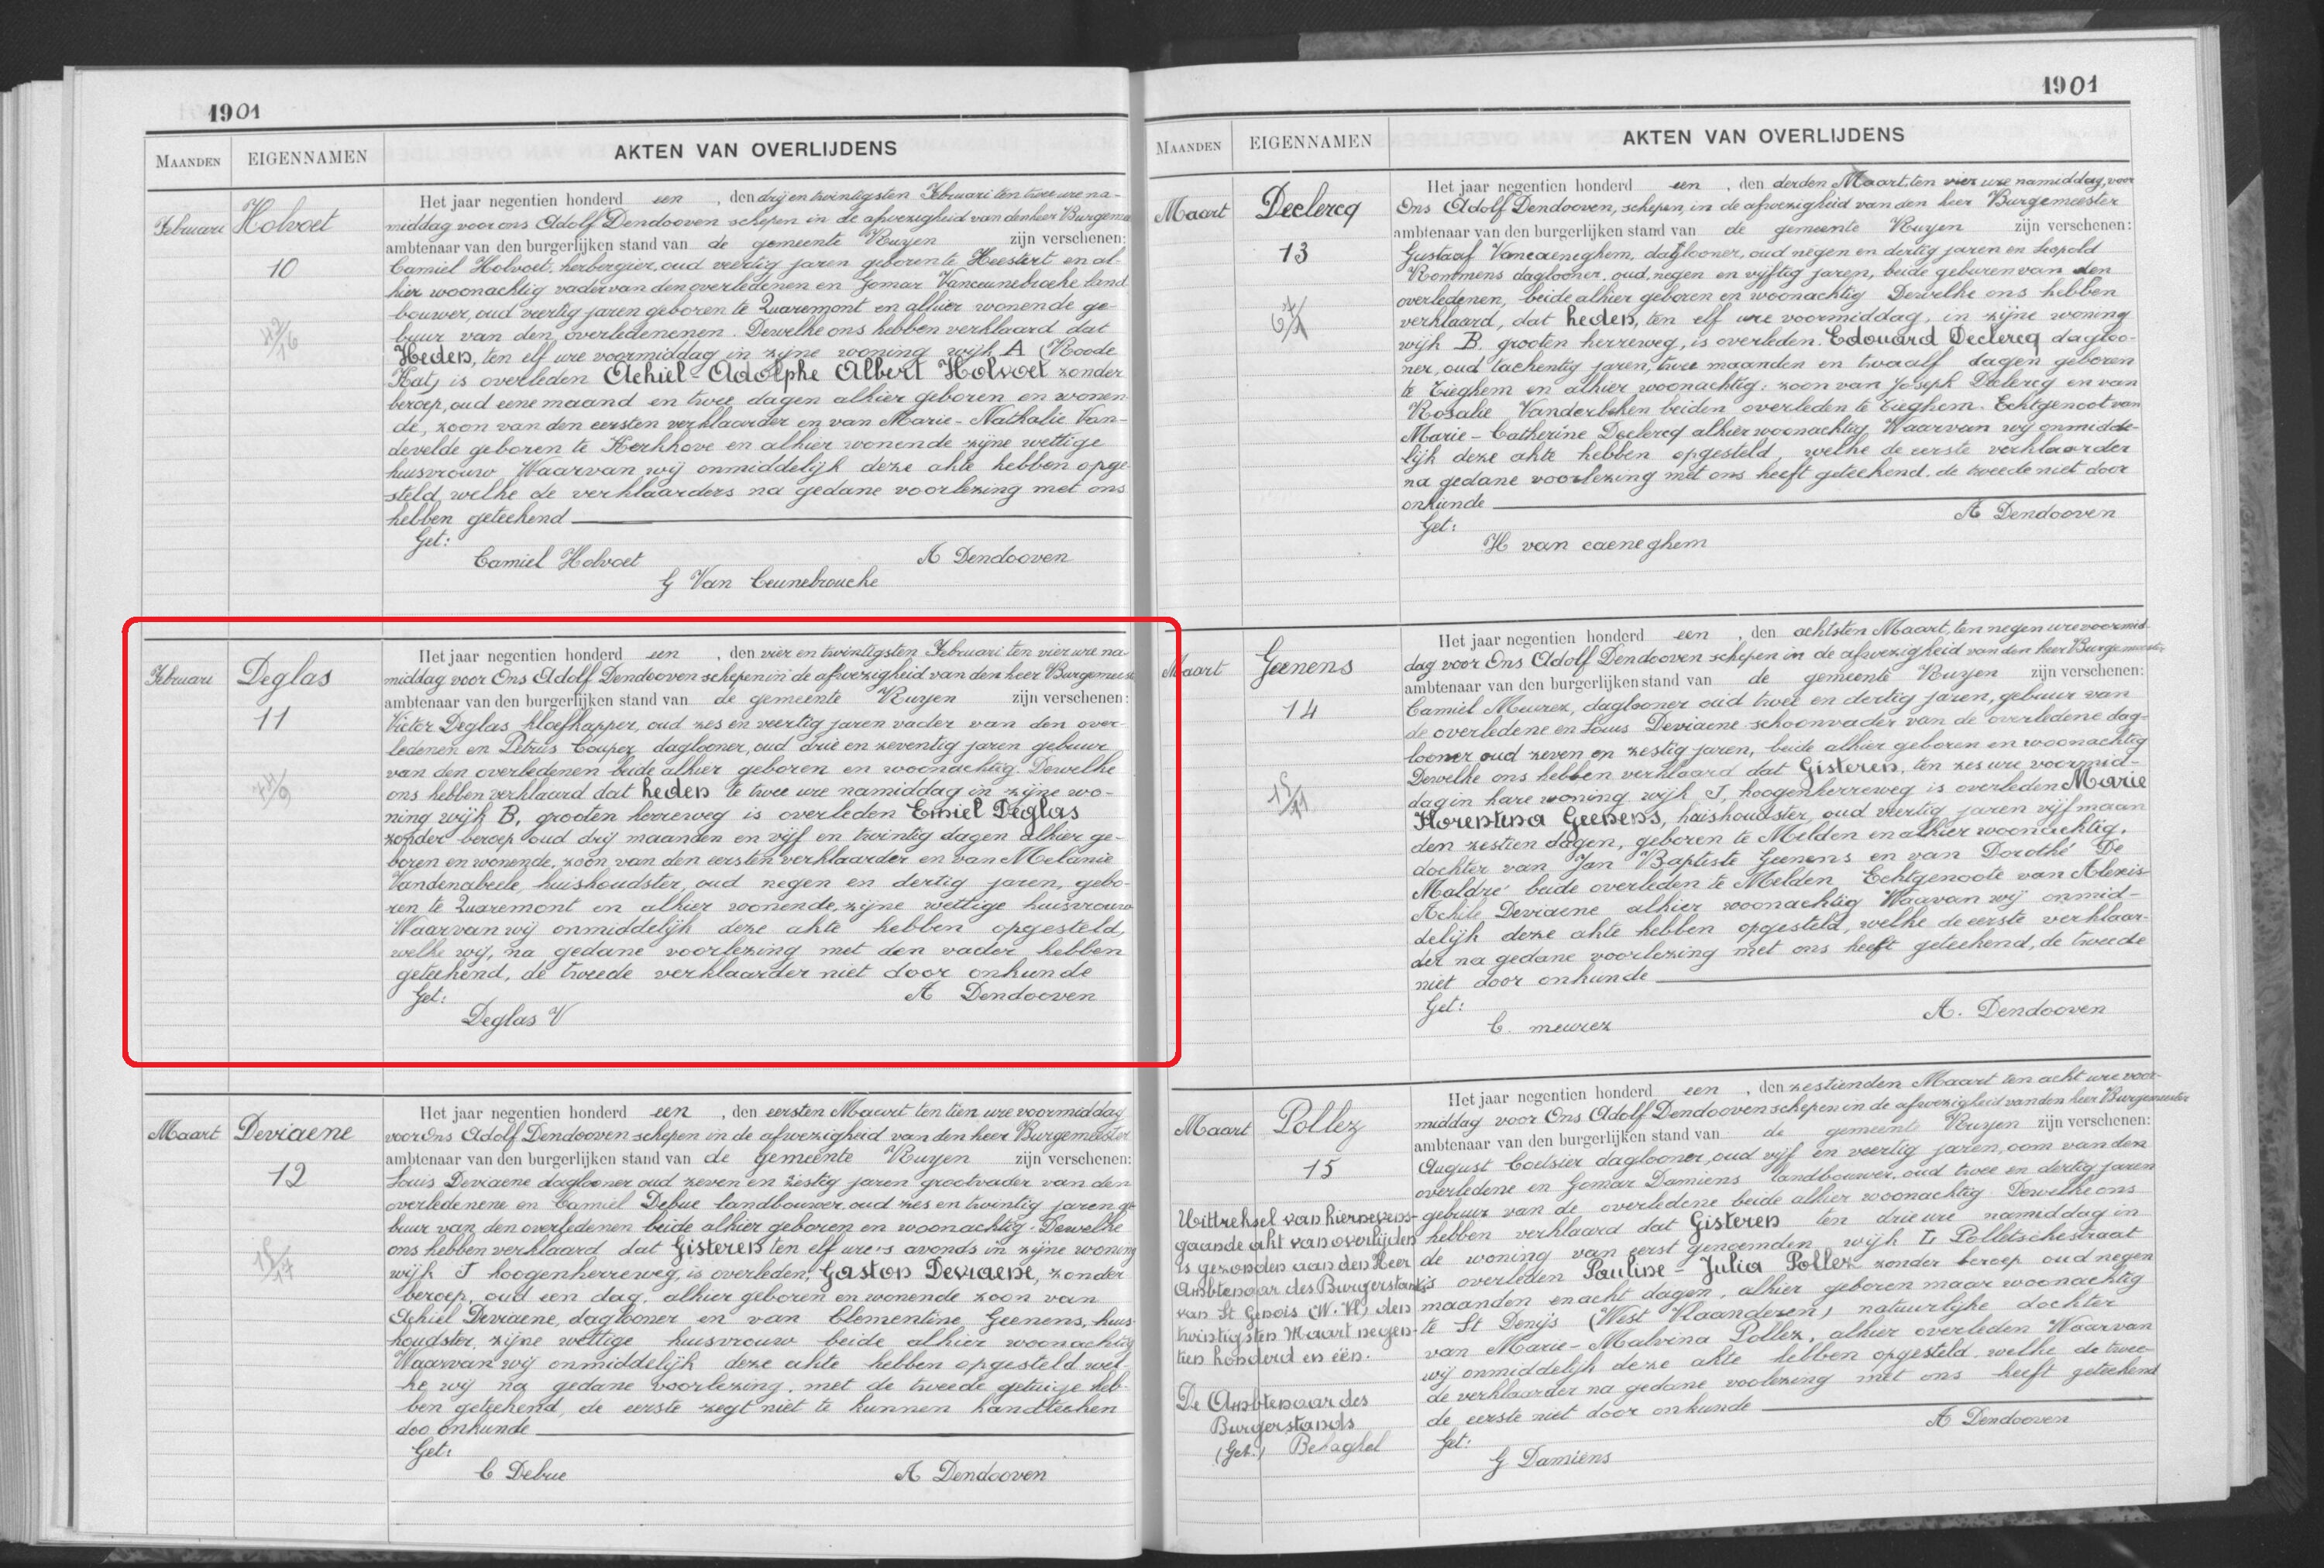 1901
MAANDEN
EIGENNAMEN
AKTEN VAN OVERLIJDENS
Februari
Holvoet
10
Het jaar negentien honderd een, den drij en twintigsten Februari ten twee ure na-
middag voor ons Adolf Dendooven schepen in de afwezigheid van den heer Burgemee
ambtenaar van den burgerlijken stand van de gemeente Ruyen zijn verschenen:
Camiel Holvoet, herbergier, oud veertig jaren geboren te Heestert en al-
hier woonachtig vader van den overledenen en Gomar Vanceunebroeke land
bouwer, oud veertig jaren geboren te Quaremont en alhier wonende ge-
buur van den overledenenen. Dewelke ons hebben verklaard dat
Heden, ten elf ure voormiddag in zijne woning wijk A (Roode
Kat) is overleden Achiel-Adolphe Albert Holvoet zonder
beroep, oud eene maand en twee dagen alhier geboren en wonen-
de, zoon van den eersten verklaarder en van Marie-Nathalie Van-
develde geboren te Kerkhove en alhier wonende zijne wettige
huisvrouw Waarvan wij onmiddelijk deze akte hebben opge-
steld welke de verklaarders na gedane voorlezing met ons
hebben geteekend
Get:
Camiel Holvoet
A Dendooven
G Van Ceunebroucke
Februari
Deglas
11
Het jaar negentien honderd een, den vier en twintigsten Februari ten vier ure na-
middag voor Ons Adolf Dendooven schepen in de afwezigheid van den heer Burgemeest
ambtenaar van den burgerlijken stand van de gemeente Ruyen zijn verschenen:
Victor Deglas kloefkapper, oud zes en veertig jaren vader van den over-
ledenen en Petrus Coupez daglooner, oud drie en zeventig jaren gebuur
van den overledenen beide alhier geboren en woonachtig. Dewelke
ons hebben verklaard dat heden te twee ure namiddag in zijne wo-
ning wijk B, grooten heereweg is overleden Emiel Deglas
zonder beroep oud drij maanden en vijf en twintig dagen alhier ge-
boren en wonende, zoon van den eersten verklaarder en van Melanie
Vandenabeele, huishoudster, oud negen en dertig jaren, gebo-
ren te Quaremont en alhier wonende, zijne wettige huisvrouw
Waarvan wij onmiddelijk deze akte hebben opgesteld,
welke wij, na gedane voorlezing met den vader hebben
geteekend, de tweede verklaarder niet door onkunde
Get:
A Dendooven
Deglas V
Maart
Deviaene
12
Het jaar negentien honderd een, den eersten Maart ten tien ure voormiddag
voor Ons Adolf Dendooven schepen in de afwezigheid van den heer Burgemeester
ambtenaar van den burgerlijken stand van de gemeente Ruyen zijn verschenen:
Louis Deviaene daglooner oud zeven en zestig jaren grootvader van den
overledenene en Camiel Debue landbouwer, oud zes en twintig jaren ge-
buur van den overledenen beide alhier geboren en woonachtig. Dewelke
ons hebben verklaard dat Gisteren ten elf ure 's avonds in zijne woning
wijk J hoogenherreweg, is overleden, Gaston Deviaene, zonder
beroep, oud een dag, alhier geboren en wonende zoon van
Achiel Deviaene, daglooner en van Clementine Geenens, huis
houdster, zijne wettige huisvrouw beide alhier woonachtig
Waarvan wij onmiddelijk deze akte hebben opgesteld wel-
ke wij na gedane voorlezing, met de tweede getuige heb-
ben geteekend, de eerste zegt niet te kunnen handteeken
doo onkunde
Get:
C Debue
A Dendooven
1901
MAANDEN
EIGENNAMEN
AKTEN VAN OVERLIJDENS
Maart
Declercq
13
Het jaar negentien honderd een, den derden Maart, ten vier ure namiddag, voor
Ons Adolf Dendooven, schepen, in de afwezigheid van den heer Burgemeester
ambtenaar van den burgerlijken stand van de gemeente Ruyen zijn verschenen:
Gustaaf Vancaeneghem, daglooner, oud negen en dertig jaren en Leopold
Rommens daglooner, oud, negen en vijftig jaren, beide geburen van den
overledenen, beide alhier geboren en woonachtig Dewelke ons hebben
verklaard, dat heden, ten elf ure voormiddag, in zijne woning
wijk B. grooten herreweg, is overleden. Edouard Declercq dagloo-
ner, oud tachentig jaren, twee maanden en twaalf dagen geboren
te Tieghem en alhier woonachtig: zoon van Joseph Declercq en van
Rosalie Vanderbeken beiden overleden te Tieghem. Echtgenoot van
Marie-Catherine Declercq alhier woonachtig Waarvan wij onmidde-
lijk deze akte hebben opgesteld, welke de eerste verklaarder
na gedane voorlezing met ons heeft geteekend. de tweede niet door
onkunde
A Dendooven
Get:
H van caeneghem
Maart
Geenens
14
Het jaar negentien honderd een, den achtsten Maart, ten negen ure voormid-
dag voor Ons Adolf Dendooven schepen in de afwezigheid van den heer Burgemeester
ambtenaar van den burgerlijken stand van de gemeente Ruyen zijn verschenen:
Camiel Meurez, daglooner oud twee en dertig jaren, gebuur van
de overledene en Louis Deviaene schoonvader van de overledene dag-
looner oud zeven en zestig jaren, beide alhier geboren en woonachtig
Dewelke ons hebben verklaard dat Gisteren, ten zes ure voormid-
dag in hare woning wijk J, hoogenherreweg is overleden Marie
Florentina Geenens, huishoudster, oud veertig jaren vijf maan
den zestien dagen, geboren te Melden en alhier woonachtig,
dochter van Jan Baptiste Geenens en van Dorothé De
Maldré beide overleden te Melden Echtgenoote van Alexis-
Achile Deviaene alhier woonachtig Waavan wij onmid-
delijk deze akte hebben opgesteld, welke de eerste verklaar-
der na gedane voorlezing met ons heeft geteekend, de tweede
niet door onkunde
Get:
A. Dendooven
C. meurez
Maart
Pollez
15
Het jaar negentien honderd een, den zestienden Maart ten acht ure voor-
middag voor Ons Adolf Dendooven schepen in de afwezigheid van den heer Burgemeester
ambtenaar van den burgerlijken stand van de gemeente Ruyen zijn verschenen:
August Coelsier daglooner, oud vijf en veertig jaren, oom van den
overledene en Gomar Damiens landbouwer, oud twee en dertig jaren
gebuur van de overledene beide alhier woonachtig Dewelke ons
hebben verklaard dat Gisteren ten drie ure namiddag in
de woning van eerst genoemden wijk L Polletschestraat
is overleden Pauline-Julia Pollez zonder beroep oud negen
maanden en acht dagen, alhier geboren maar woonachtig
te St Denijs (West Vlaanderen) natuurlijke dochter
van Marie-Malvina Pollez, alhier overleden Waarvan
wij onmiddelijk deze akte hebben opgesteld welke de twee-
de verklaarder na gedane voolezing met ons heeft geteekend
de eerste niet door onkunde
A Dendooven
Get:
G Damiens
Uittreksel van hiernevens-
gaande akt van overlijden
is gezonden aan den Heer
Ambtenaar des Burgerstands
van St Genois (W. Vl) den
twintigsten Maart negen-
tien honderd en één.
De Ambtenaar des
Burgerstands
(Get.) Behaghel